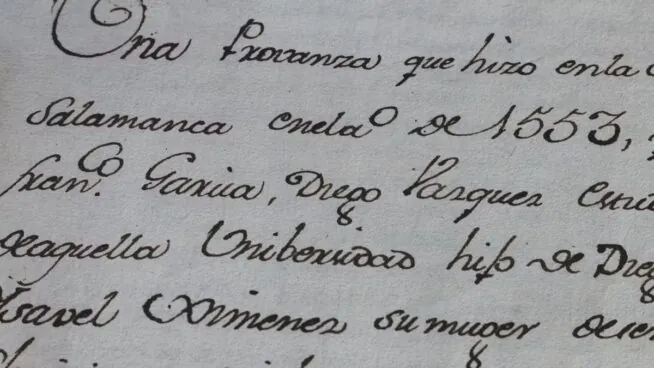 Una Provanza que hizo en la
Salamanca en el aº de 1553,
Franᶜᵒ. Garcia, Diego Vazquez
de aquella Unibersidad hijo de
Ysavel Ximenez su muger